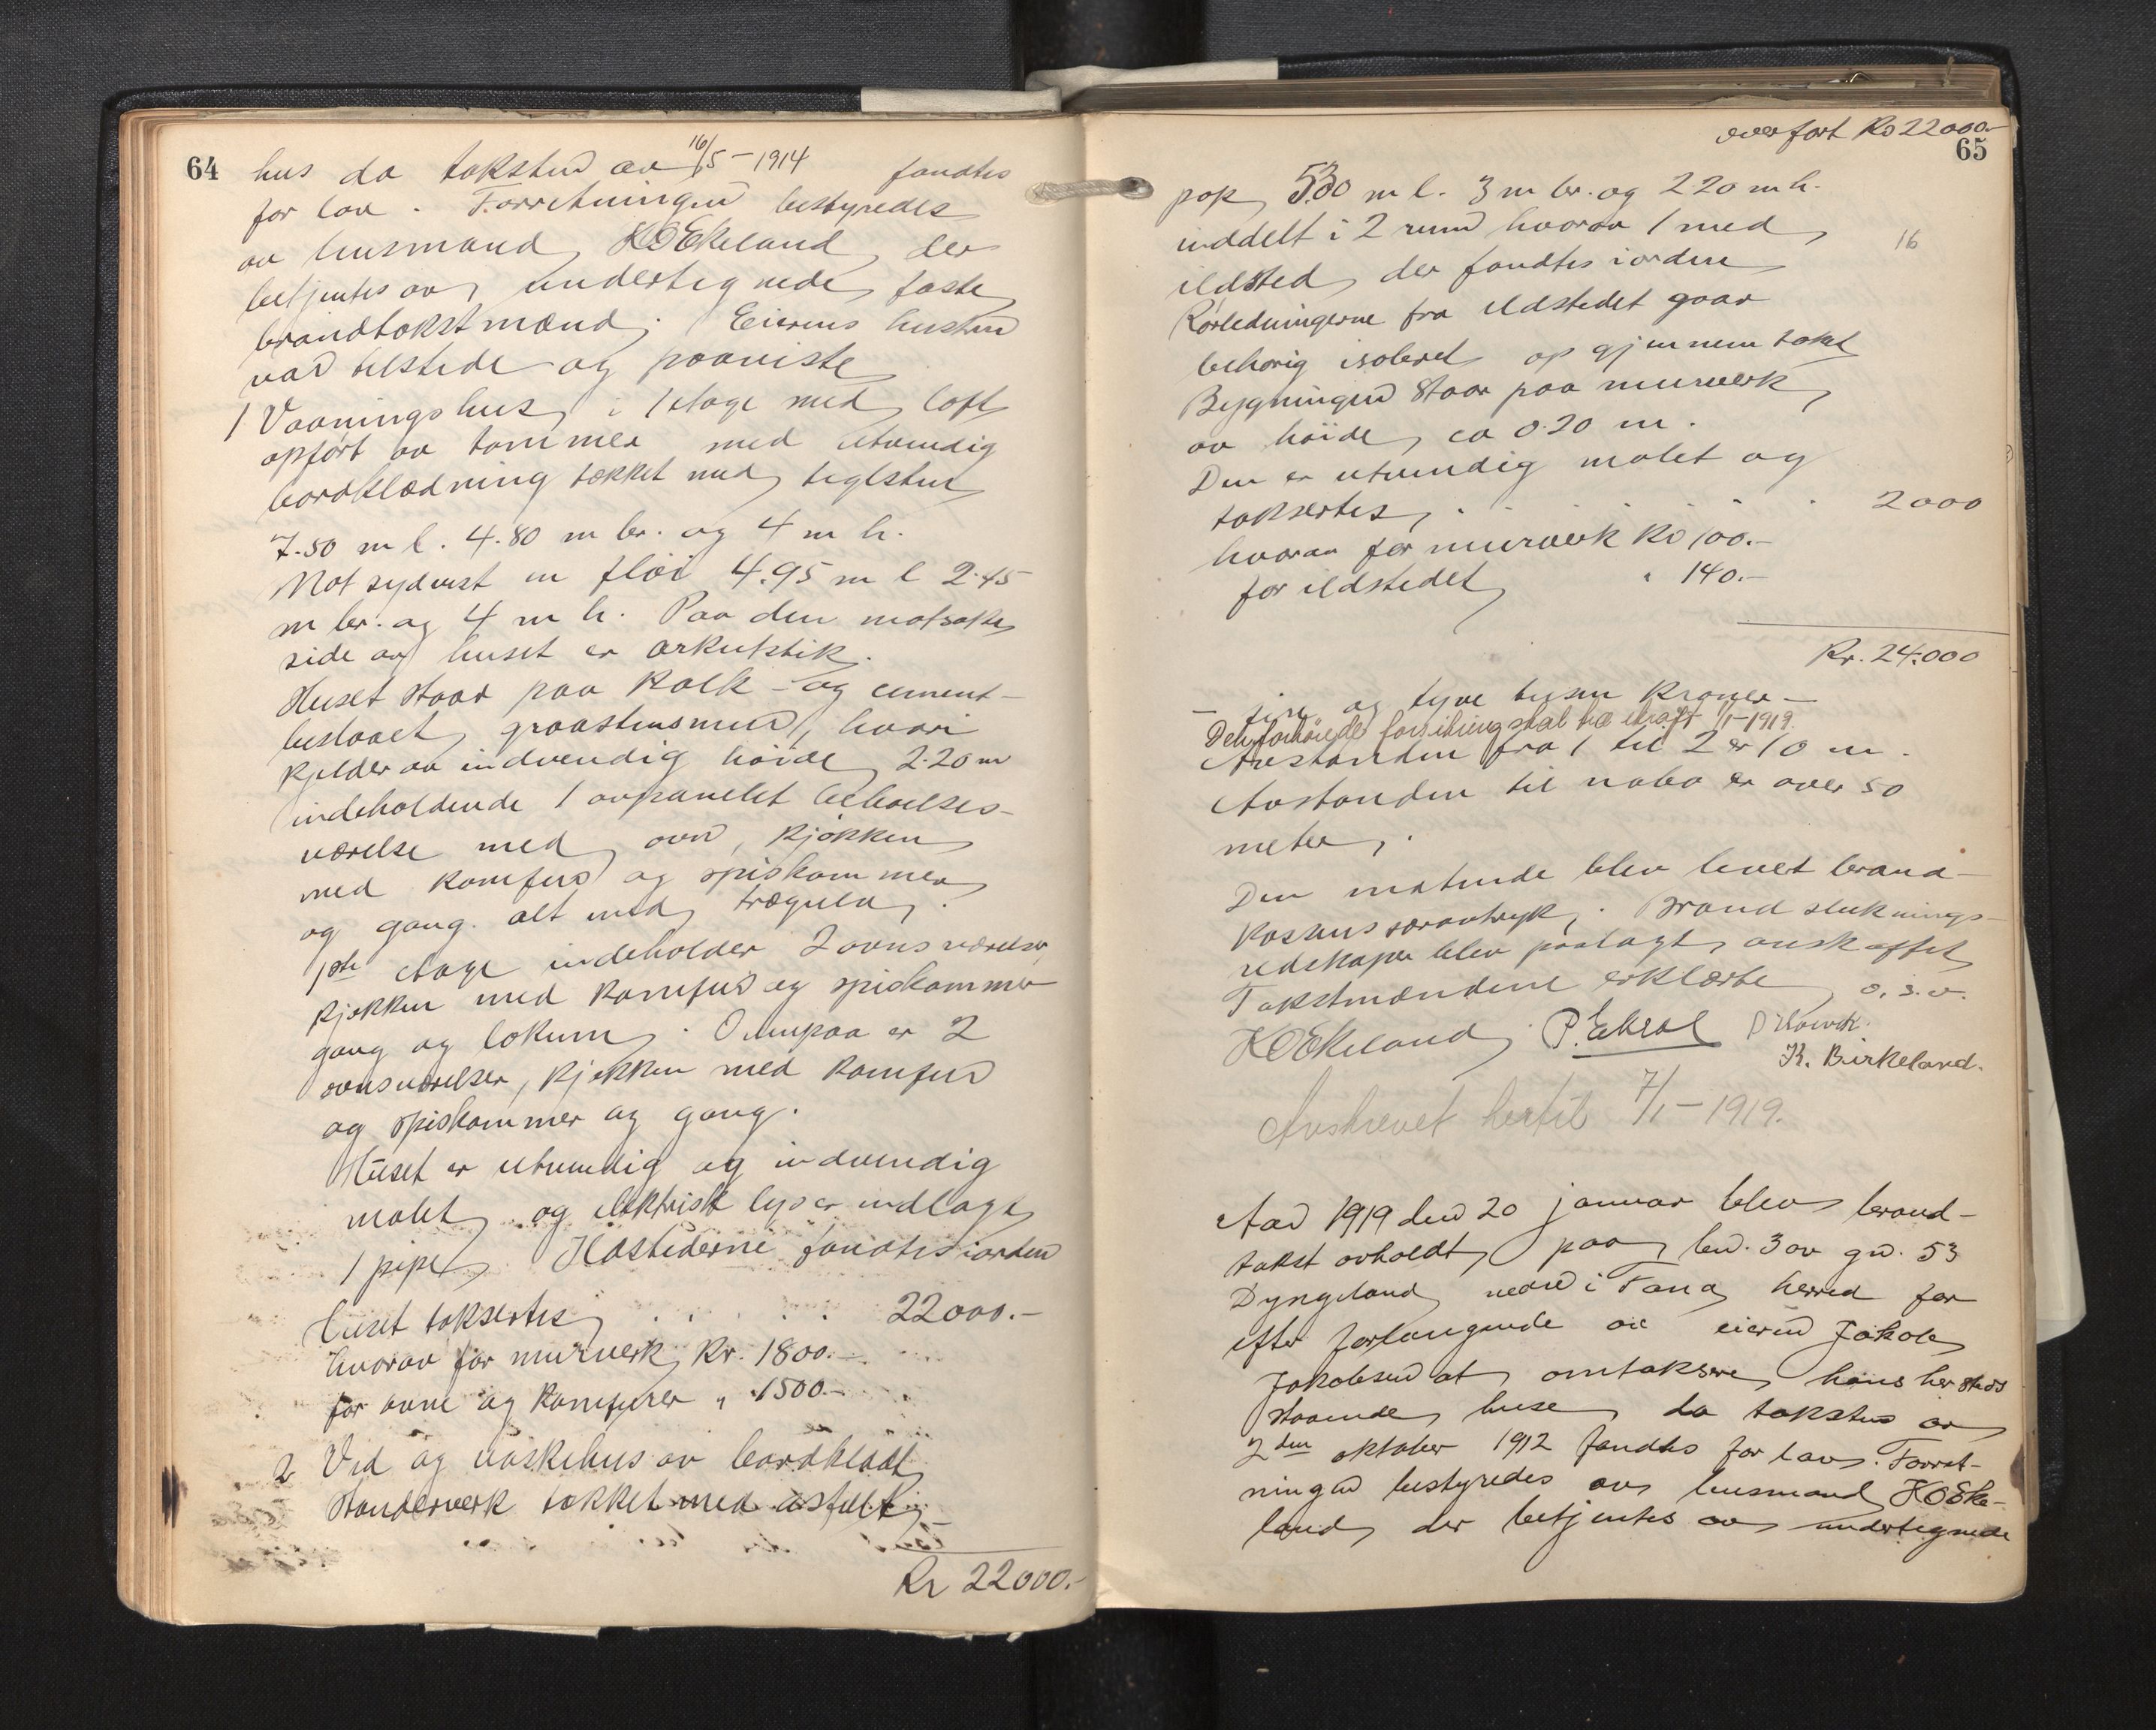 64
hus da taksten av 16/5-1914 fandtes
for lav. Forretningen bestyredes
av lensmand K O Ekeland, der
betjentes av undertegnede faste
brandtakstmænd. Eierens hustru
var tilstede og paaviste
1 Vaaningshus i 1 etage med loft
opført av tømmer med utvendig
bordklædning tækket med teglsten
7.50 m l. 4.80 m br. og 4 m h.
Mot sydvest en fløi 4.95 m l 2.45
m br. og 4 m h. Paa den motsatte
side av huset er arkutstik.
Huset staar paa kalk- og cement-
beslaaet graastensmur, hvori
kjelder av indvendig høide 2.20 m
indeholdende 1 avpanelet beboelses-
værelse med ovn, kjøkken
med komfur og spiskammer
og gang. alt med trægulv.
1ste etage indeholder 2 ovnsværelser,
kjøkken med komfur og spiskammer
gang og lokum. Ovenpaa er 2
ovnsværelser, kjøkken med komfur
og spiskammer og gang.
Huset er utvendig og indvendig
malet og elektrisk lys er indlagt
1 pipe. Ildstederne fandtes i orden
Huset taksertes . . . . . 22000.-
hvorav for murverk Kr. 1800.-
for ovne og komfurer " 1500.-
2 Ved og vaskehus av bordklædt
standerverk tækket med asfalt-
Kr 22000.-
overført Kr 22000.-
65
pap 5.30 m l. 3 m br. og 2 20 m h.
inddelt i 2 rum hvorav 1 med
16
ildsted der fandtes i orden
Rørledningerne fra ildstedet gaar
behørig isoleret op gjennem taket
Bygningen staar paa murverk
av høide ca 0.20 m.
Den er utvendig malet og
taksertes . . . . . 2000
hvorav for murverk Kr 100.-
for ildstedet " 140.-
Kr. 24.000
- fire og tyve tusen kroner -
Den forhøiede forsikring skal træ i kraft 1/1-1919.
Avstanden fra 1 til 2 er 10 m.
Avstanden til nabo er over 50
meter.
Den møtende blev levert brand-
kassens særavtryk. Brandsluknings-
redskaper blev paalagt anskaffet
Takstmændene erklærte o. s. v.
K O Ekeland P. Ekrol
K. Birkeland.
Avskrevet hertil 7/1-1919.
Aar 1919 den 20 januar blev brand-
takst avholdt paa br. 3 av gr. 53
Dyngeland nedre i Fana herred for
efter forlangende av eieren Jakob
Jakobsen at omtaksere hans hersteds
staaende huse da taksten av
2den oktober 1912 fandtes for lav. Forret-
ningen bestyredes av lensmand K O Eke-
land der betjentes av undertegnede